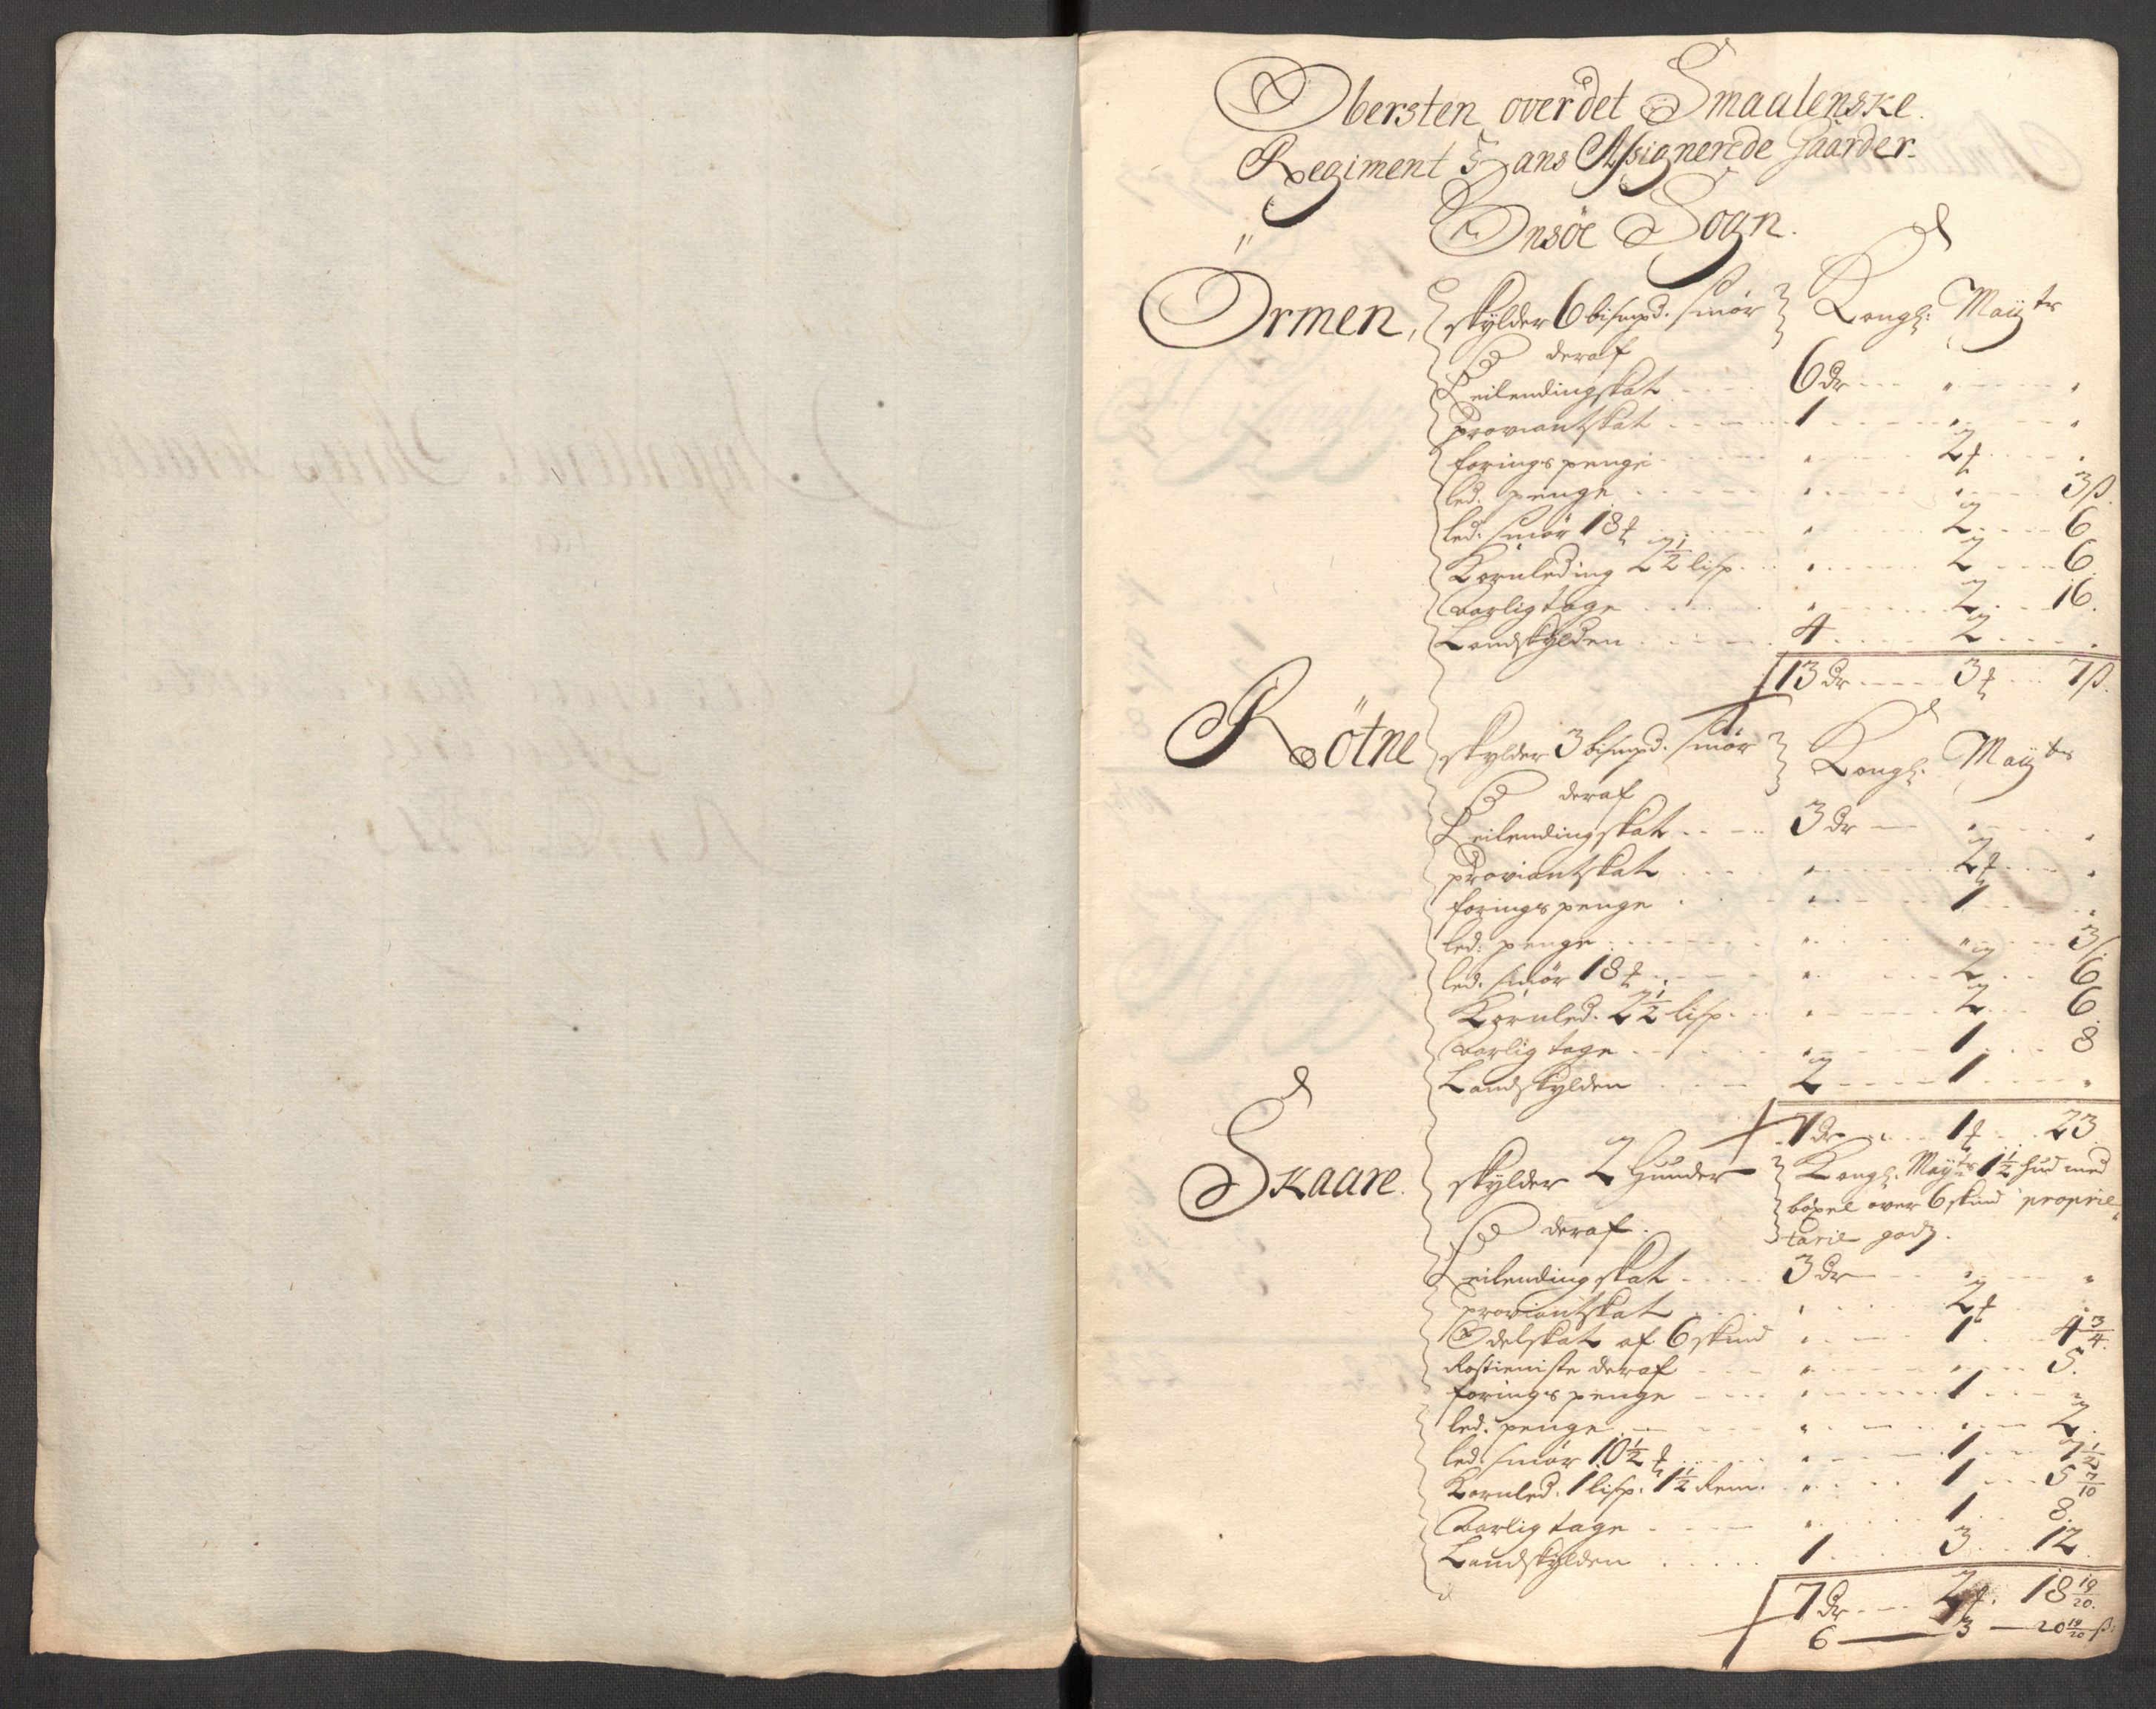 Obersten over det Smaalenske
Regiment Hans Assignerede Gaarder.
Onsøe Sogn.
Örmen, skylder 6 bismpd. smør Kongl: Mayts
deraf
Leilendingskat 6 dr " "
proviantskat 1 " "
foringspenge " 2 "
led. penge " " 3 ß.
led. smør 18 " 2 6
Kornleding 2½ lisp. " 2 6.
Aarligtage " 2 16.
Landskylden 4 2 "
13 dr 3 7 ß.
Rötne skylder 3 bismpd. smør Kongl: Mayts
deraf
Leilendingskat 3 dr " "
proviantskat " 2 "
foringspenge " 1 "
led: penge " " 3 ß
led. smør 18 " 2 6
Kornled. 2½ lisp. " 2 6.
Aarligtage " 1 8
Landskylden 2 1 "
7 dr 1 23
Skaare. skylder 2 Huuder Kongl. Mayts 1½ hud med
bøxel over 6 skind proprie-
tarie godz.
deraf.
Leilendingskat 3 dr " "
proviantskat " 2 "
Odelskat af 6 skind " 1 4¾
Rostieniste deraf " " 5.
foringspenge " 1 "
led. penge " " 2.
led: smør 10½ " 1 7½
Kornled. 1 lisp. 1½ Rem. " 1 5 7/10
Aarligtage " 1 8.
Landskylden 1 3 12.
7 dr 2 18 19/20.
6 — 3 — 20 19/20 ß.